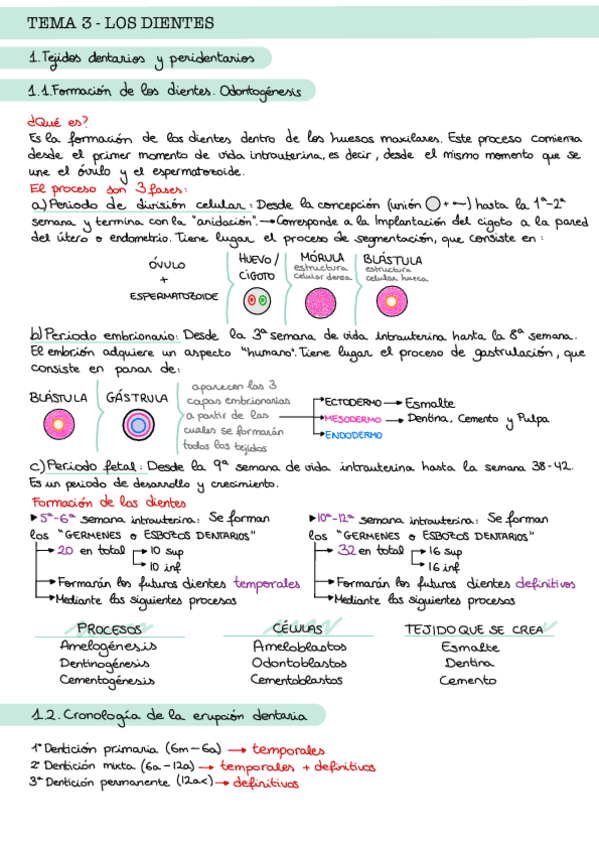 TEMA 3 - LOS DIENTES
1. Tejidos dentarios y peridentarios
1.1. Formación de los dientes. Odontogénesis
¿Qué es?
Es la formación de los dientes dentro de los huesos maxilares. Este proceso comienza
desde el primer momento de vida intrauterina, es decir, desde el mismo momento que se
une el óvulo y el espermatozoide.
El proceso son 3 fases:
a) Periodo de división celular: Desde la concepción (unión + ) hasta la 1ª-2ª
semana y termina con la "anidación". → Corresponde a la Implantación del cigoto a la pared
del útero o endometrio. Tiene lugar el proceso de segmentación, que consiste en:
ÓVULO
+
ESPERMATOZOIDE
HUEVO/
CIGOTO
MÓRULA
estructura
celular densa
BLÁSTULA
estructura
celular hueca
b) Periodo embrionario: Desde la 3ª semana de vida intrauterina hasta la 8ª semana.
El embrión adquiere un aspecto "humano". Tiene lugar el proceso de gastrulación, que
consiste en pasar de:
BLÁSTULA
GÁSTRULA
aparecen las 3
capas embrionarias
a partir de las
cuales se formarán
todos los tejidos
ECTODERMO → Esmalte
MESODERMO → Dentina, Cemento y Pulpa
ENDODERMO
c) Periodo fetal: Desde la 9ª semana de vida intrauterina hasta la semana 38-42.
Es un periodo de desarrollo y crecimiento.
Formación de los dientes
▸5ª-6ª semana intrauterina: Se forman
los "GÉRMENES o ESBOZOS DENTARIOS"
→ 20 en total → 10 sup
→ 10 inf
→ Formarán los futuros dientes temporales
→ Mediante los siguientes procesos
▸10ª-12ª semana intrauterina: Se forman
los "GÉRMENES o ESBOZOS DENTARIOS"
→ 32 en total → 16 sup
→ 16 inf
→ Formarán los futuros dientes definitivos
→ Mediante los siguientes procesos
PROCESOS CÉLULAS TEJIDO QUE SE CREA
Amelogénesis Ameloblastos Esmalte
Dentinogénesis Odontoblastos Dentina
Cementogénesis Cementoblastos Cemento
1.2. Cronología de la erupción dentaria
1ª Dentición primaria (6m-6a) → temporales
2ª Dentición mixta (6a-12a) → temporales + definitivos
3ª Dentición permanente (12a<) → definitivos